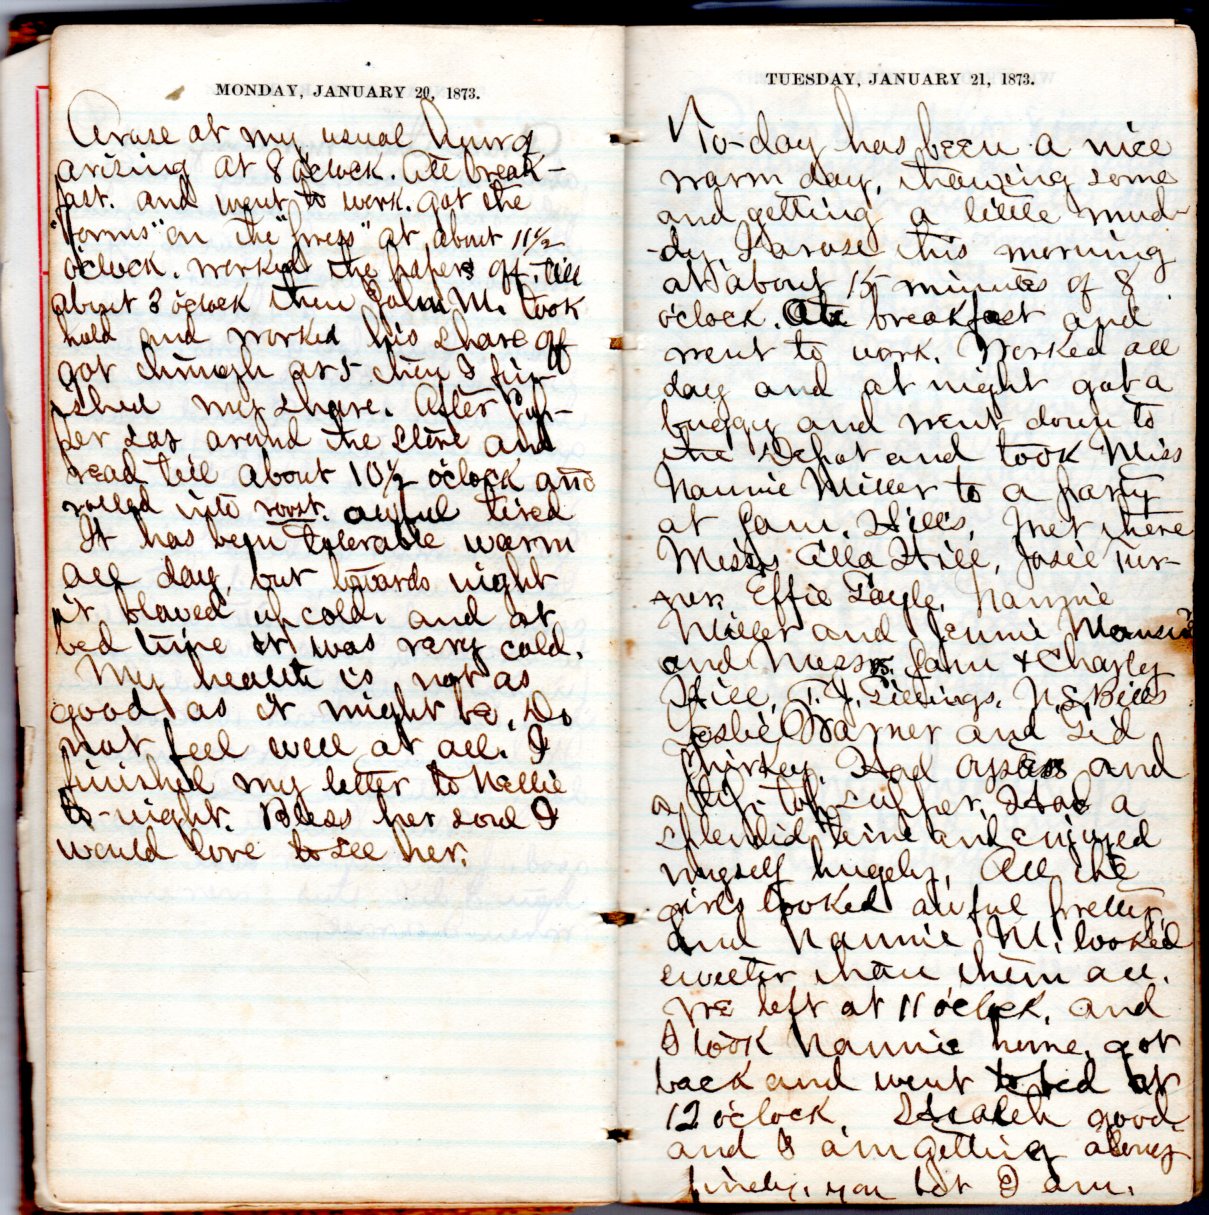 MONDAY, JANUARY 20, 1873.
Arose at my usual hour of
arising at 8 o'clock. Ate break-
fast. and went to work. Got the
"forms" on the "press" at about 11½
o'clock. worked the papers off till
about 3 o'clock then John M. took
hold and worked his share off
got through at 5 then I fin-
ished my share. After sup-
per sat around the store and
read till about 10½ o'clock and
rolled into roost. awful tired
It has been tolerable warm
all day, but towards night
it blowed up cold, and at
bed time it was very cold.
My health is not as
good as it might be. Do
not feel well at all. I
finished my letter to Nellie
to-night. Bless her soul I
would love to see her.
TUESDAY, JANUARY 21, 1873.
To-day has been a nice
warm day, thawing some
and getting a little mud-
-dy. I arose this morning
at about 15 minutes of 8
o'clock. Ate breakfast and
went to work. Worked all
day and at night got a
buggy and went down to
the Depot and took Miss
Nannie Miller to a party
at Sam Hill's. Met there
Misses Ella Hill, Josie Tur-
ner, Effie Gayle, Nannie
Miller and Jennie
and Messrs. Sam & Charley
Hill, T. J. N. E. Bills
Warner and Sid
Had oysters and
supper. Had a
splendid time and enjoyed
myself hugely. All the
girls looked awful pretty,
and Nannie M. looked
sweeter than them all.
We left at 11 o'clock, and
I took Nannie home, got
back and went to bed at
12 o'clock. Health good
and I am getting along
finely, you bet I am.